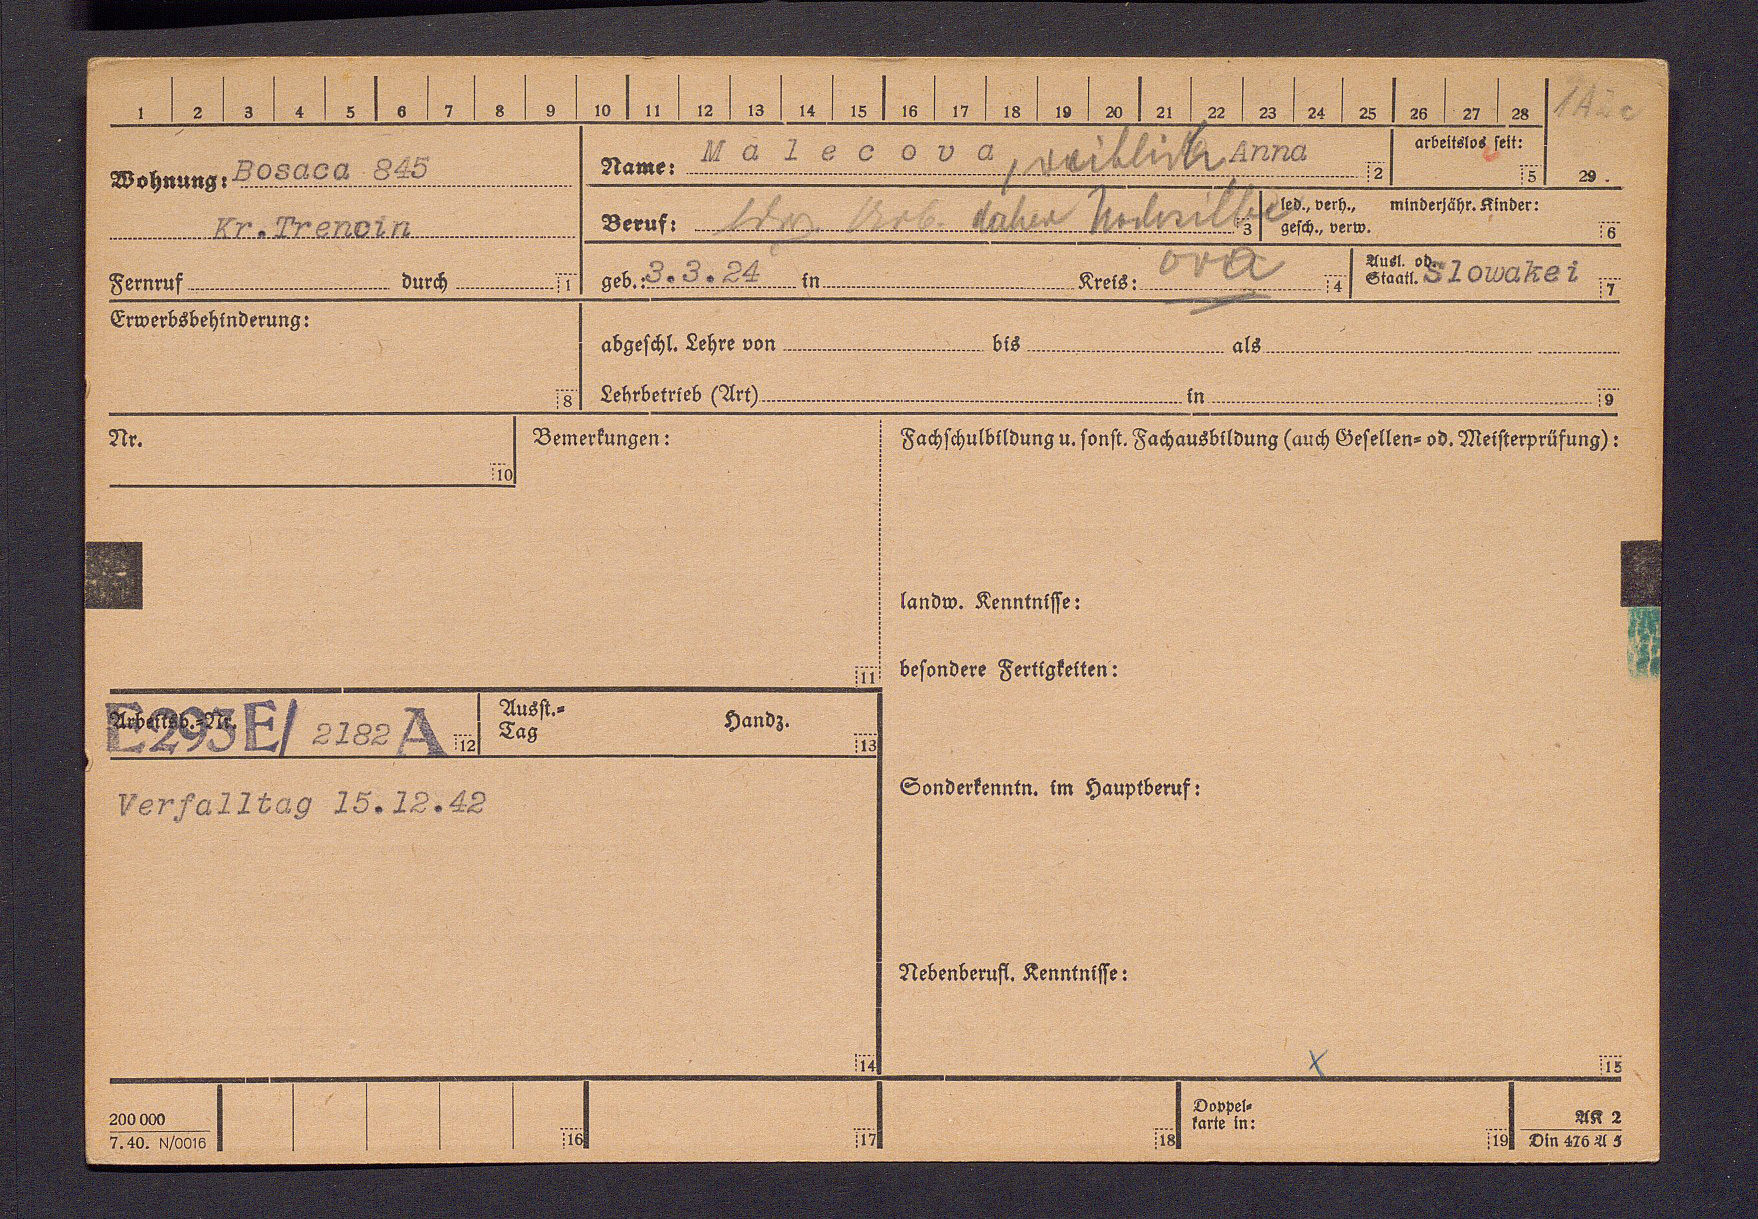 1 2 3 4 5 6 7 8 9 10 11 12 13 14 15 16 17 18 19 20 21 22 23 24 25 26 27 28
Wohnung: Bosaca 845
Kr. Trencin
Name: Malecova, weiblich Anna 2
arbeitslos seit: 5
29.
Beruf: daher Nachsilbe 3
led., verh., gesch., verw.
minderjähr. Kinder: 6
Fernruf durch 1
geb.: 3.3.24 in Kreis: ova 4
Ausl. od. Staatl. Slowakei 7
Erwerbsbehinderung: 8
abgeschl. Lehre von bis als
Lehrbetrieb (Art) in 9
Nr. 10
Bemerkungen: 11
Fachschulbildung u. sonst. Fachausbildung (auch Gesellen= od. Meisterprüfung):
landw. Kenntnisse:
besondere Fertigkeiten:
Arbeitsb.=Nr. E293E/ 2182 A 12
Ausst.=Tag Handz. 13
Verfalltag 15.12.42
14
Sonderkenntn. im Hauptberuf:
Nebenberufl. Kenntnisse:
x 15
200 000
7. 40. N/0016
16 17 18
Doppel=
karte in: 19
AK 2
Din 476 A 5